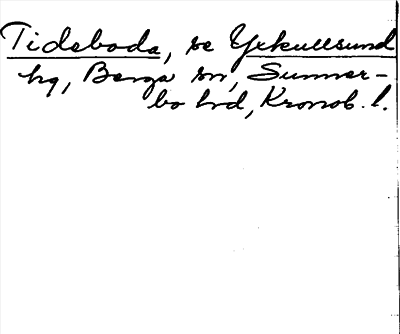 Tideboda, se Yxkullsund
hg, Berga sn, Sunner-
bo hrd, Kronob. l.